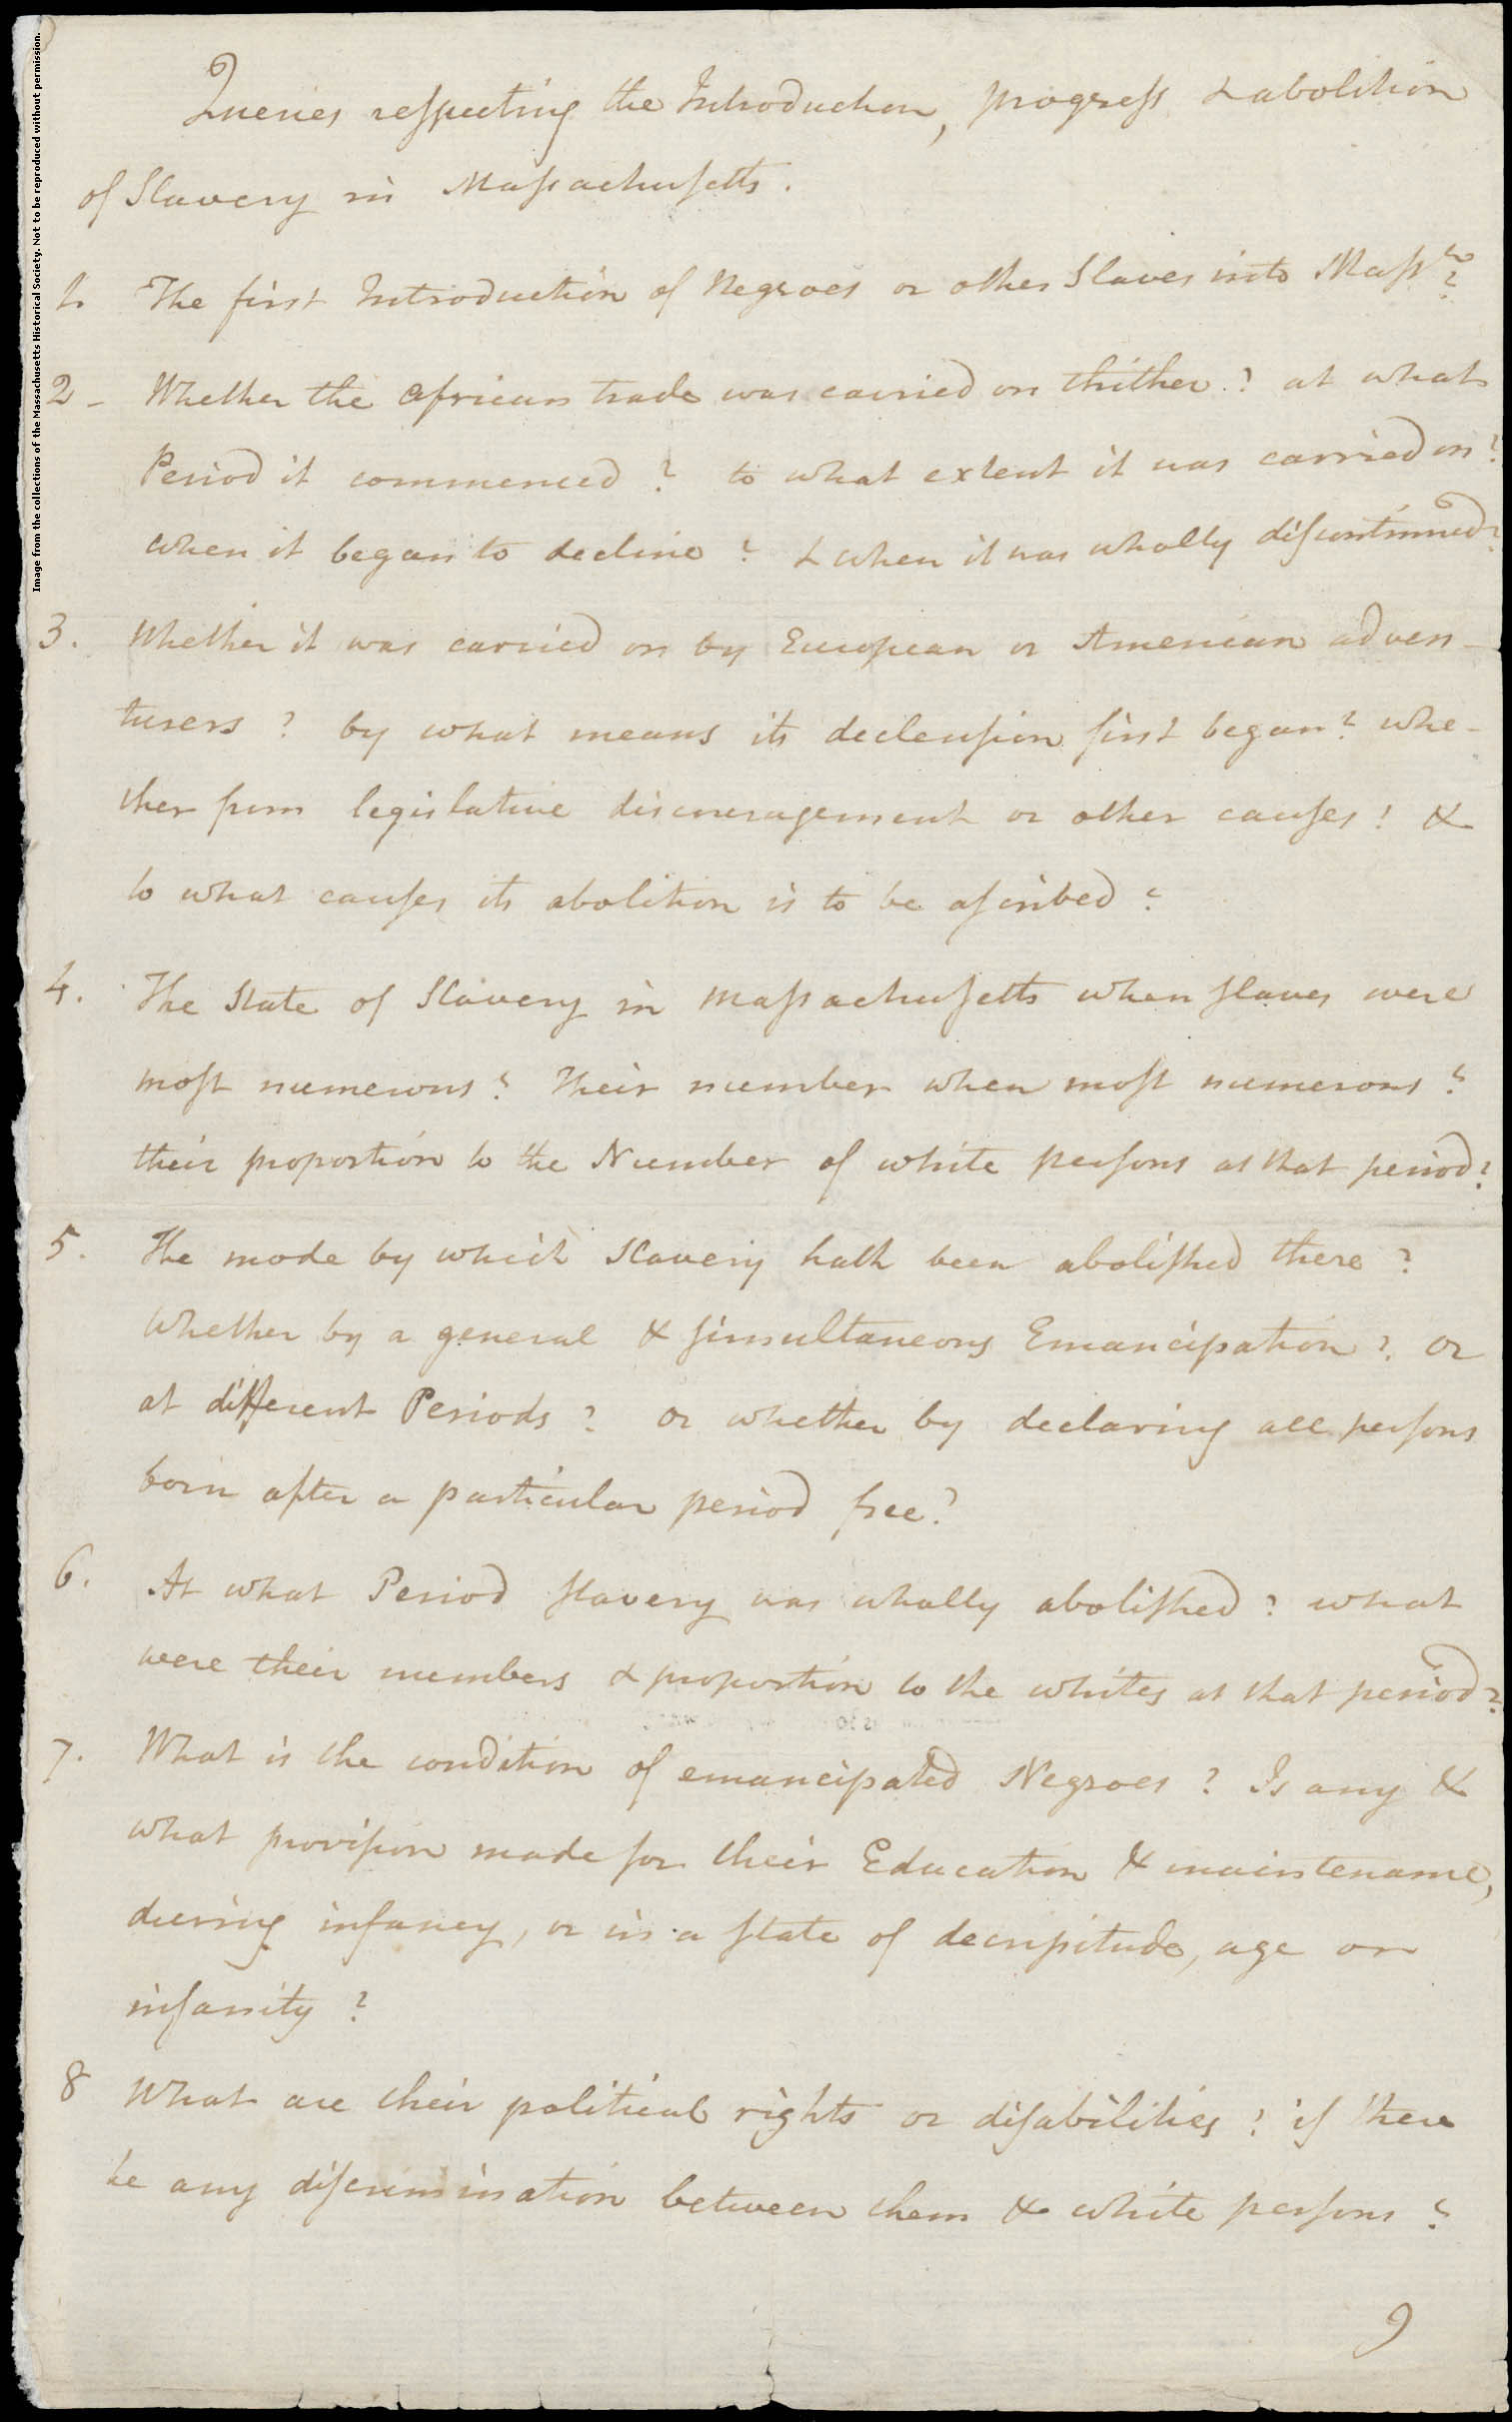 Image from the collections of the Massachusetts Historical Society. Not to be reproduced without permission.
Queries respecting the Introduction, progress & abolition
of Slavery in Massachusetts.
1. The first Introduction of Negroes or other Slaves into Massts?
2 - Whether the african trade was carried on thither? at what
Period it commenced? to what extent it was carried on?
when it began to decline? & when it was wholly discontinued?
3. Whether it was carried on by European or American adven-
turers? by what means its declension first began? whe-
ther from legislative discouragement or other causes? &
to what causes its abolition is to be ascribed?
4. The State of Slavery in Massachusetts when slaves were
most numerous? Their number when most numerous?
their proportion to the Number of white persons at that period?
5. The mode by which Slavery hath been abolished there?
Whether by a general & simultaneous Emancipation? or
at different Periods? or whether by declaring all persons
born after a particular period free?
6. At what Period slavery was wholly abolished? what
were their numbers & proportion to the whites at that period?
7. What is the condition of emancipated Negroes? Is any &
what provision made for their Education & maintenance,
during infancy, or in a state of decrepitude, age or
insanity?
8 What are their political rights or disabilities? if there
be any discrimination between them & white persons?
9